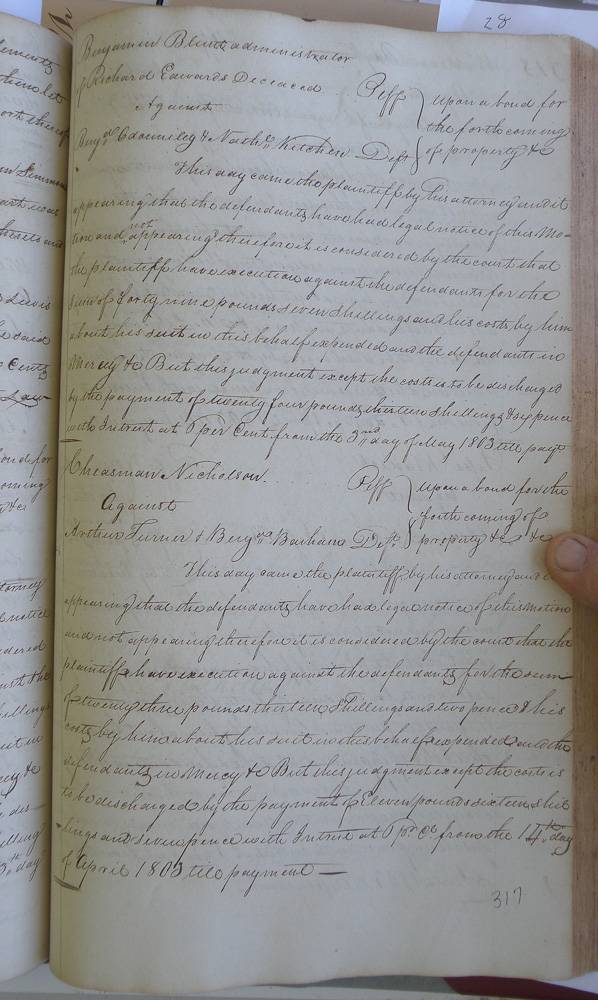 28
Benjamin Blunt administrator
of Richard Edwards Deceased
Plff
Upon a bond for
Against
the forthcoming
Benjn. & Nathl. Kitchen Defts
of property &c
This day came the plaintiff by his attorney and it
appearing that the defendants have had legal notice of this Mo-
tion and not appearing therefore it is considered by the court that
the plaintiff have execution against the defendants for the
Sum of forty nine pounds seven shillings and his costs by him
about his suit in this behalf expended and the defendants in
Mercy &c But this judgment except the costs is to be discharged
by the payment of twenty four pounds thirteen shillings & six pence
with Intrest at 5 per Cent from the 3rd day of May 1803 till payt
Cheasman Nicholson
Plff
Upon a bond for the
Against
forthcoming of
Arthur Turner & Benjn. Barham Defts
property &c &c
This day came the plaintiff by his attorney and it
appearing that the defendants have had legal notice of this Motion
and not appearing therefore it is considered by the court that the
plaintiff have execution against the defendants for the sum
of twenty three pounds thirteen Shillings and two pence & his
costs by him about his suit in this behalf expended and the
defendants in Mercy &c But this judgment except the costs is
to be discharged by the payment of Eleven pounds sixteen shil
lings and seven pence with Intrest at 5 pr. Ct. from the 14th day
of April 1803 till payment —
317